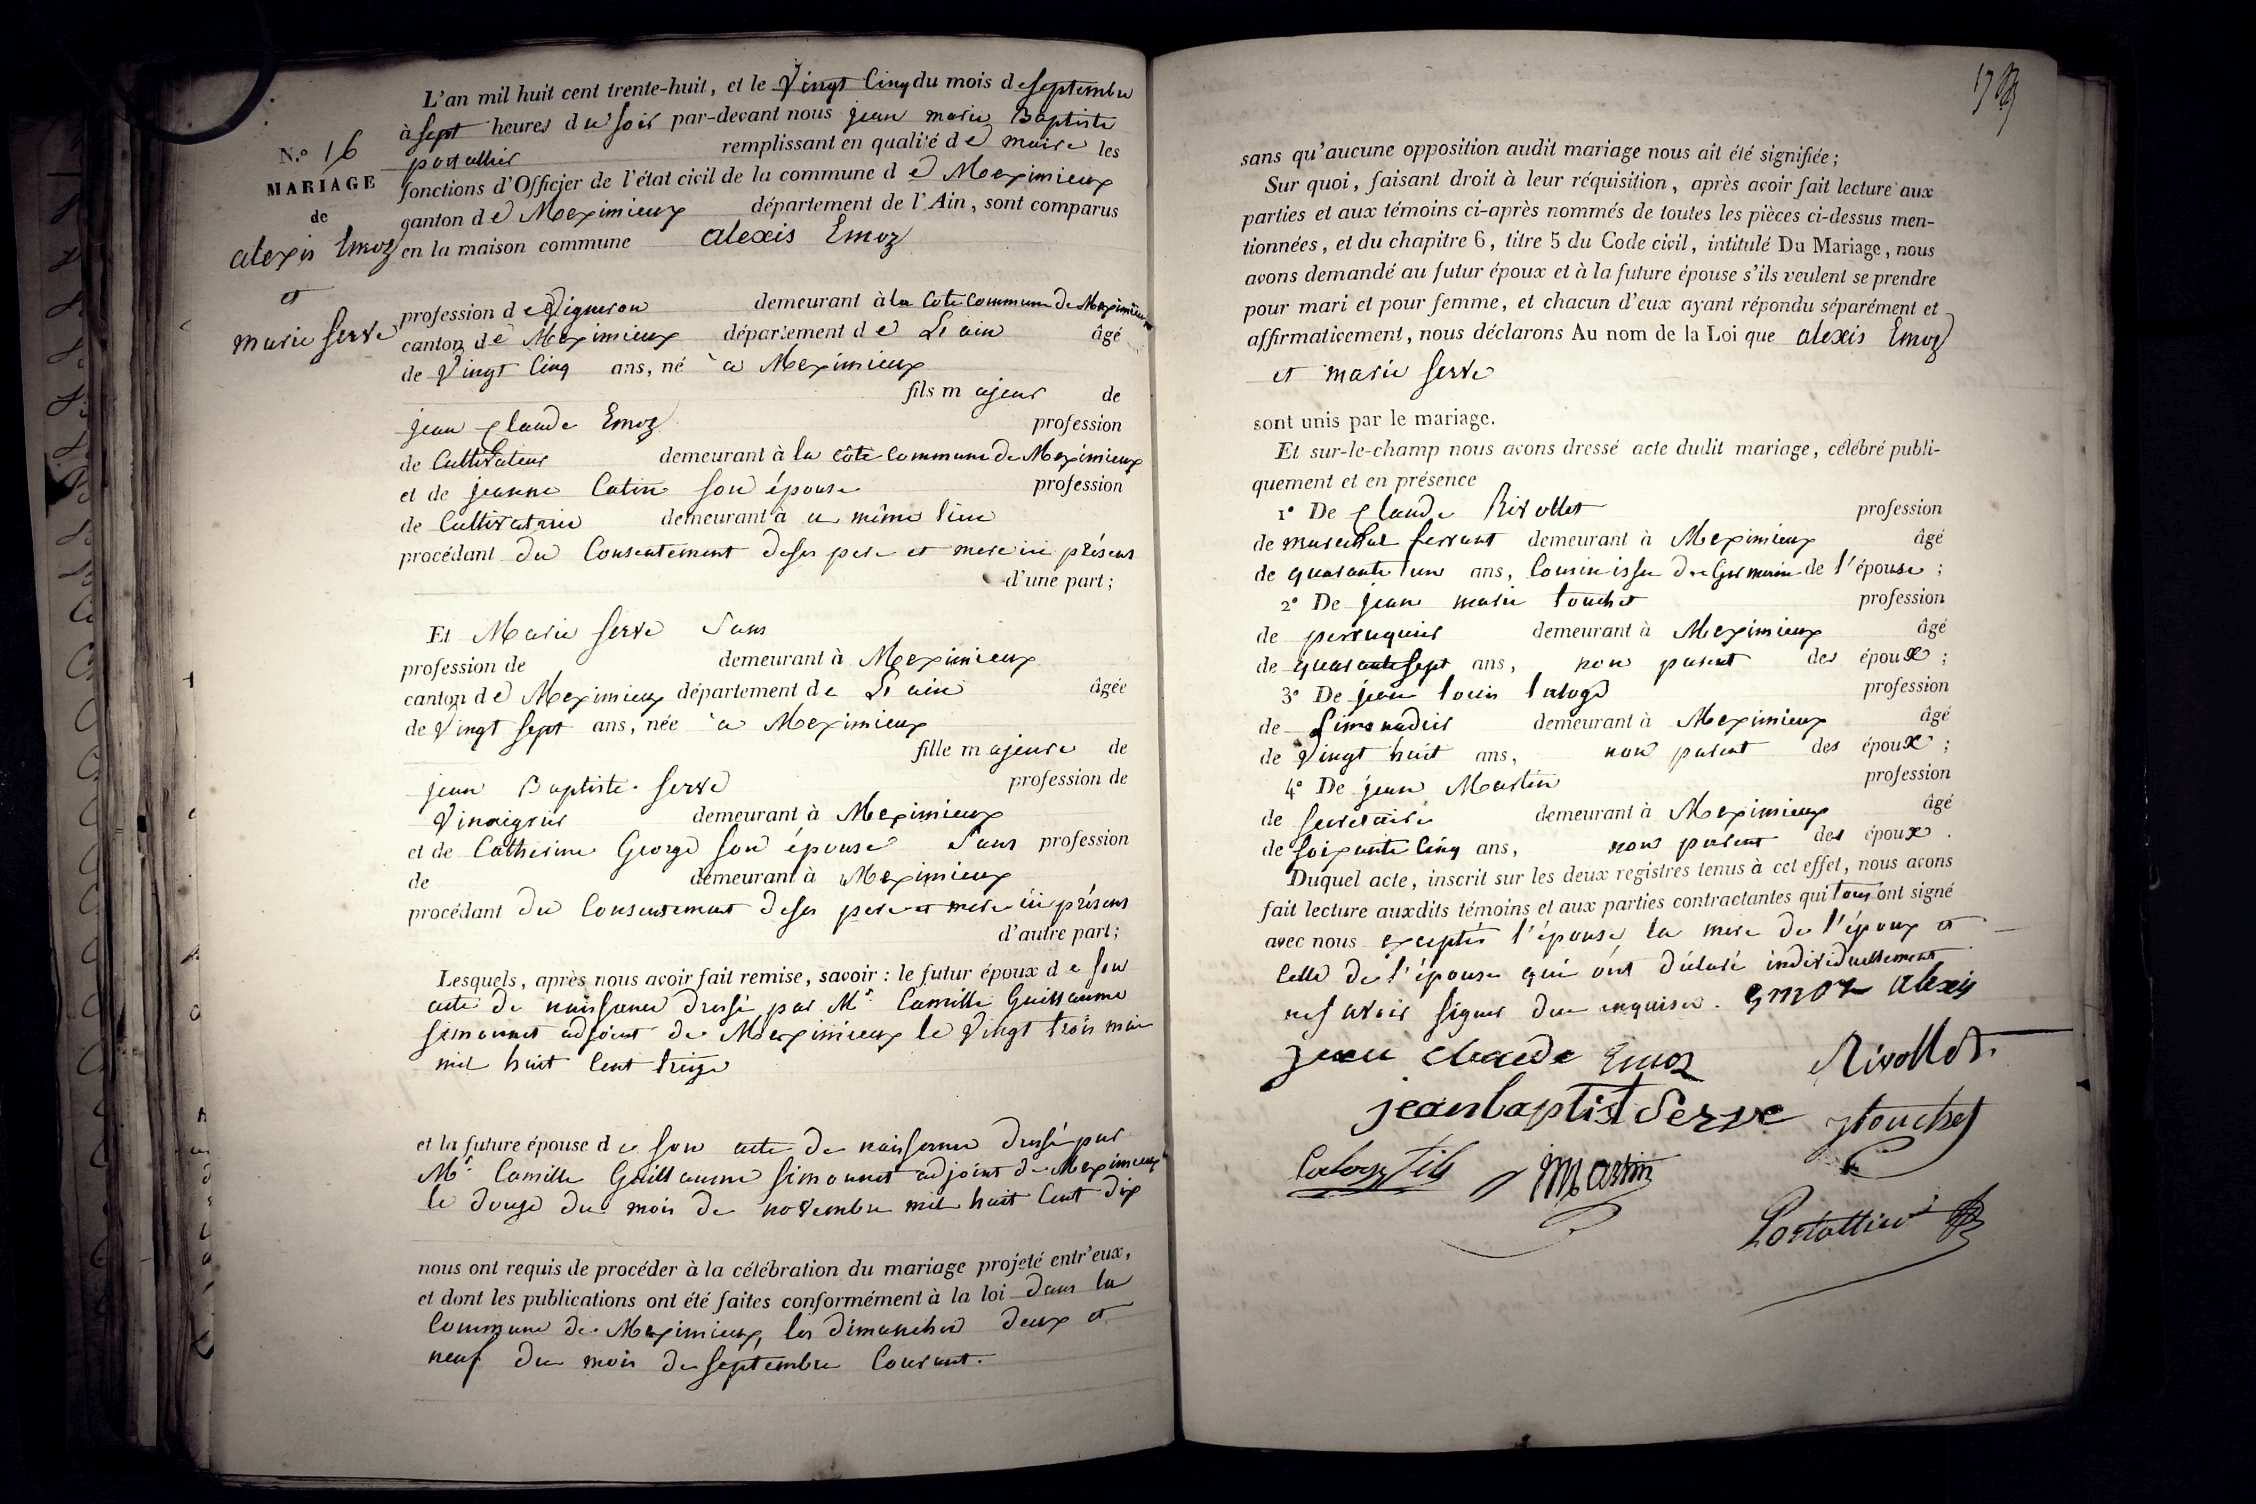 L'an mil huit cent trente-huit, et le Vingt Cinq du mois de septembre
à sept heures du soir par-devant nous jean marie Baptiste
portallier remplissant en qualité de maire les
fonctions d'Officier de l'état civil de la commune de Meximieux
canton de Meximieux département de l'Ain, sont comparus
en la maison commune alexis Emoz
N.° 16
MARIAGE
de
alexis Emoz
et
marie serve
profession de Vigneron demeurant à la Cote Commune De Meximieux
canton de Meximieux département de L'ain âgé
de Vingt Cinq ans, né à Meximieux
fils majeur de
jean Claude Emoz profession
de Cultivateur demeurant à la côte Commune De Meximieux
et de jeanne Catin son épouse profession
de Cultivatrice demeurant à u même lieu
procédant du Consentement de ses pere et mere ici présens
d'une part;
Et Marie serve Sans
profession de demeurant à Meximieux
canton de Meximieux département de L'ain âgée
de Vingt sept ans, née à Meximieux
fille majeure de
jean Baptiste serve profession de
Vinaigrier demeurant à Meximieux
et de Catherine George son épouse Sans profession
de demeurant à Meximieux
procédant du Consentement de ses pere et mere ici présens
d'autre part;
Lesquels, après nous avoir fait remise, savoir: le futur époux de son
acte de naissance dressé par Mr. Camille Guillaume
simonnet adjoint de Meximieux le Vingt trois mai
mil huit Cent treize
et la future épouse de son acte de naissance dressé par
Mr. Camille Guillaume simonnet adjoint de Meximieux
le douze du mois de novembre mil huit Cent dix
nous ont requis de procéder à la célébration du mariage projeté entr'eux,
et dont les publications ont été faites conformément à la loi dans la
Commune de Meximieux, les dimanches deux et
neuf du mois de septembre Courant.
sans qu'aucune opposition audit mariage nous ait été signifiée;
Sur quoi, faisant droit à leur réquisition, après avoir fait lecture aux
parties et aux témoins ci-après nommés de toutes les pièces ci-dessus men-
tionnées, et du chapitre 6, titre 5 du Code civil, intitulé Du Mariage, nous
avons demandé au futur époux et à la future épouse s'ils veulent se prendre
pour mari et pour femme, et chacun d'eux ayant répondu séparément et
affirmativement, nous déclarons Au nom de la Loi que alexis Emoz
et marie serve
sont unis par le mariage.
Et sur-le-champ nous avons dressé acte dudit mariage, célébré publi-
quement et en présence
1° De Claude Rivollet profession
de marechal ferrant demeurant à Meximieux âgé
de quarante un ans, Cousin issu de Germain de l'épouse;
2° De jean marie touchet profession
de perruquier demeurant à Meximieux âgé
de quarante sept ans, non parent des époux;
3° De jean louis laloge profession
de Limonadier demeurant à Meximieux âgé
de Vingt huit ans, non parent des époux;
4° De jean Martin profession
de secretaire demeurant à Meximieux âgé
de soixante Cinq ans, non parent des époux.
Duquel acte, inscrit sur les deux registres tenus à cet effet, nous avons
fait lecture auxdits témoins et aux parties contractantes qui tous ont signé
avec nous exceptés l'épouse la mere de l'époux et
Celle de l'épouse qui ont déclaré individuellement
ne savoir signer de ce enquises. Emoz alexis
jean claude Emoz Rivollet
jean baptist Serve touchet
Laloge fils Martin
Portallier